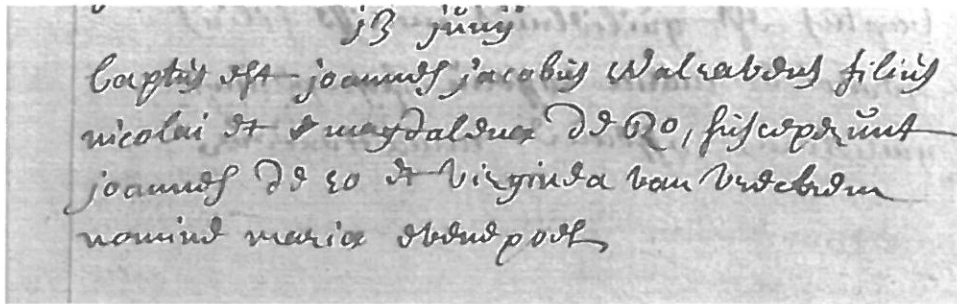 13 junij
baptus est joannes jacobus walravens filius
nicolai et magdalena de Ro, susceperunt
joannes de ro et virginea van bredebem
nomine maria evenepoel